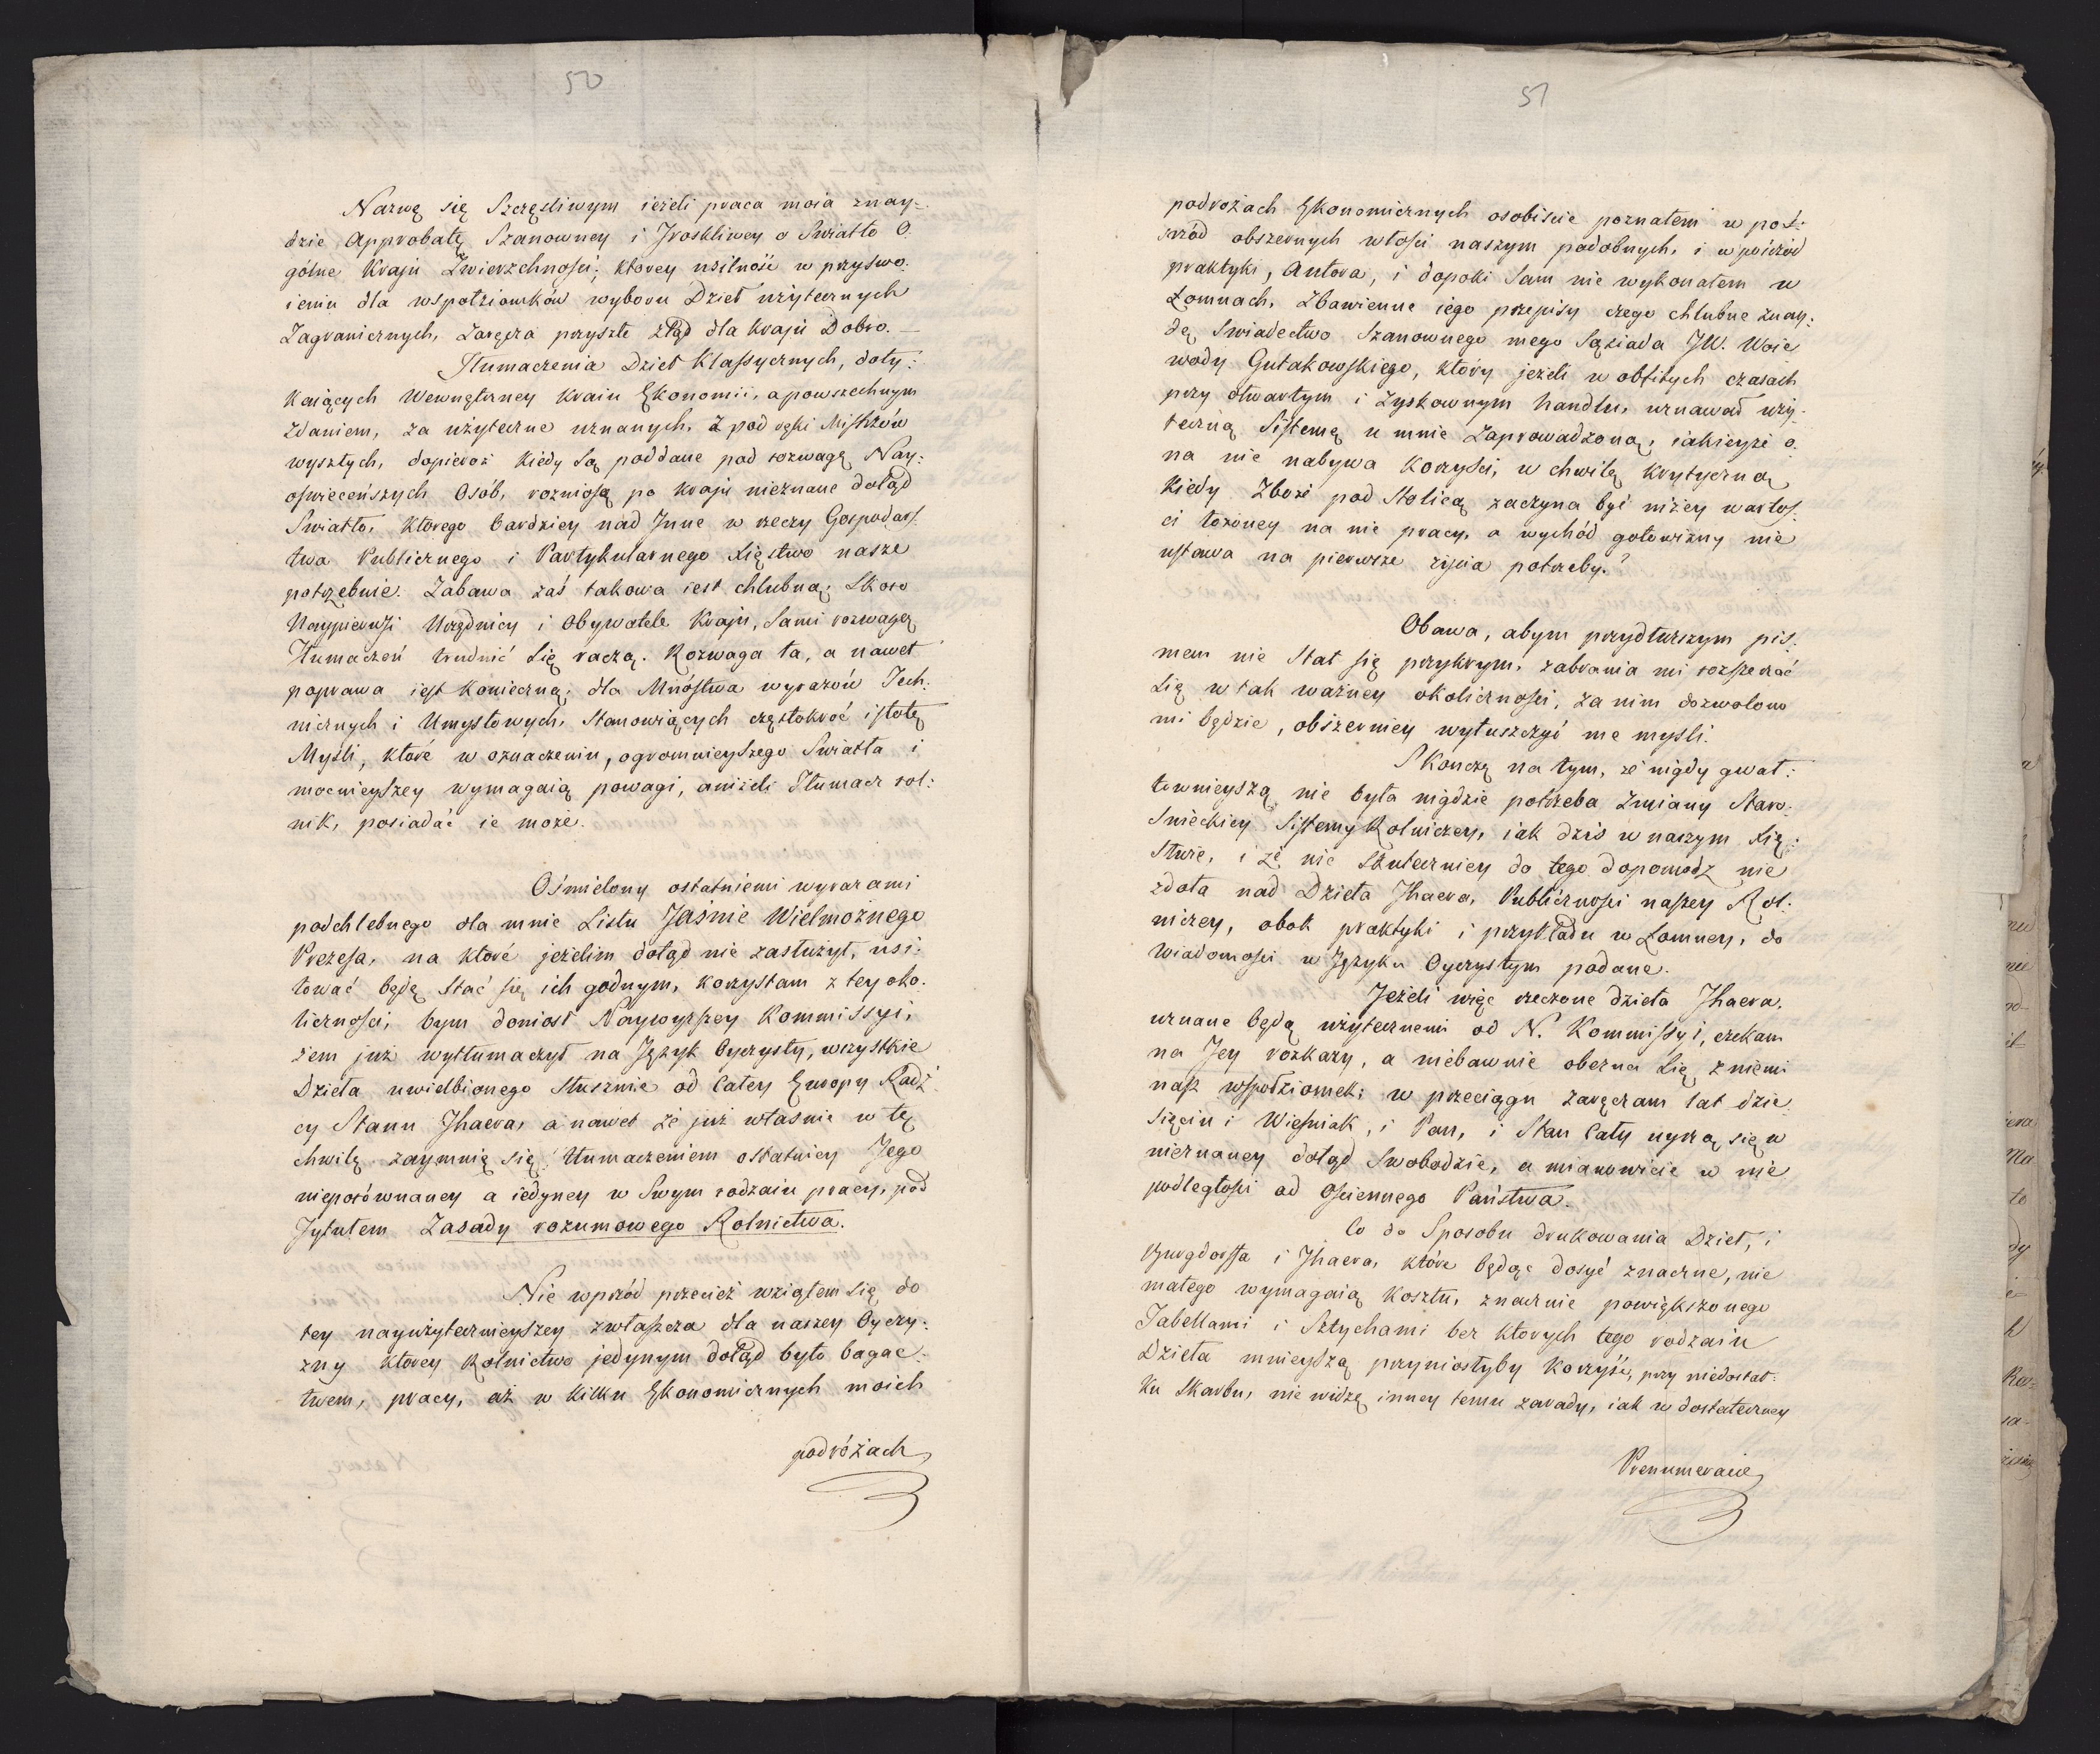 50
Nazwę się Szczęsliwym ieżeli praca moia znay-
dzie Approbatę Szanowney i Troskliwey o Swiatło O.
gólne Kraju Zwierzchności; ktorey usilność w przyswo.
ieniu dla wspołziomków wyboru Dzieł użytecznych
Zagranicznych, Zaręcza przyszłe ztąd dla kraju Dobro. —
Tłumaczenia Dzieł Klassycznych, doty:
kaiących Wewnętrzney kraiu Ekonomii, a powszechnym
Zdaniem, za użyteczne uznanych, z pod ręki Mistrzów
wyszłych, dopieroż kiedy Są poddane pod rozwagę Nay:
oświeceńszych Osób, rozniosą po kraju nieznane dotąd
Swiatło, ktorego bardziey nad Inne w rzeczy Gospodars.
twa Publicznego i Partykularnego Xięstwo nasze
potrzebuie. Zabawa zaś takowa iest chlubną; Skoro
Naypierwsi Urzędnicy i Obywatele Kraju, Sami rozwagą
Tłumaczeń trudnić Się raczą. Rozwaga ta, a nawet
poprawa iest konieczną, dla Mnóstwa wyrazów Tech:
nicznych i Umysłowych, Stanowiących częstokroć istotę
Myśli, które w oznaczeniu, ogromnieyszego Swiatła i
mocnieyszey wymagaią powagi, aniżeli Tłumacz rol:
nik, posiadać ie może.
Ośmielony ostatniemi wyrazami
podchlebnego dla mnie Listu Jaśnie Wielmożnego
Prezesa, na które jeżelim dotąd nie zasłużył, usi:
łować będę Stać się ich godnym, korzystam z tey oko.
liczności; bym doniosł Naywyższey Kommissyi,
żem już wytłumaczył na Język Oyczysty, wszystkie
Dzieła uwielbionego Słusznie od Całey Europy Radź
cy Stanu Thaera, a nawet że już własnie w tę
chwilę zaymuię się Tłumaczeniem ostatniey Jego
nieporównaney a iedyney w Swym rodzaiu pracy, pod
Tytułem Zasady rozumowego Rolnictwa.
Nie wprzód przecież wziąłem Się do
tey nayużytecznieyszey zwłaszcza dla naszey Oyczy:
zny ktorey Rolnictwo jedynym dotąd było bogac-
twem, pracy, aż w kilku Ekonomicznych moich
podróżach
51
podrożach Ekonomicznych osobiście poznałem w poś:
śród obszernych włości naszym podobnych, i w pośród
praktyki, Autora, i dopoki Sam nie wykonałem w
Łomnach, Zbawienne iego przepisy czego chlubne znay:
dę Swiadectwo Szanownego mego Sąsiada JW. Woie
wody Gutakowskiego, który jeżeli w obfitych czasach
przy otwartym i Zyskownym handlu, uznawał uży-
teczną Sistemę u mnie Zaprowadzoną, iakieyże o.
na nie nabywa korzyści, w chwilę krytyczną
kiedy Zboże pod Stolicą zaczyna być niżey wartoś.
ci łożoney na nie pracy, a wychód gotowizny nie
ustawa na pierwsze życia potrzeby.?
Obawa, abym przydłuższym pis:
mem nie Stał się przykrym, zabrania mi rozszerzać
Się w tak ważney okoliczności, za nim dozwolono
mi będzie, obszerniey wyłuszczyć me mysli.
Skonczę na tym, że nigdy gwał:
townieyszą nie była nigdzie potrzeba Zmiany Staro.
Swieckiey Sistemy Rolniczey, iak dziś w naszym Xię:
Stwie, i że nic Skuteczniey do tego dopomodz nie
zdoła nad Dzieła Thaera, Publiczności naszey Rol:
niczey, obok praktyki i przykładu w Łomney, do
wiadomości w Języku Oyczystym podane.
Jeżeli więc rzeczone dzieła Thaera,
uznane będą użytecznemi od N. Kommissyi, czekam
na Jey rozkazy, a niebawnie obezna Się z niemi
nasz współziomek; w przeciągu zaręczam lat dzie
sięciu i Wieśniak, i Pan, i Stan Cały uyrzą się w
nieznaney dotąd Swobodzie, a mianowicie w nie
podległości od Ościennego Państwa.
Co do Sposobu drukowania Dzieł, i
Burgdorffa i Thaera, które będąc dosyć znaczne, nie
małego wymagaią kosztu, znacznie powiększonego
Tabellami i Sztychami bez ktorych tego rodzaiu
Dzieła mnieyszą przyniosłyby korzyść, przy niedostat-
ku Skarbu, nie widzę inney temu zarady, iak w dostateczney
Prenumeracie